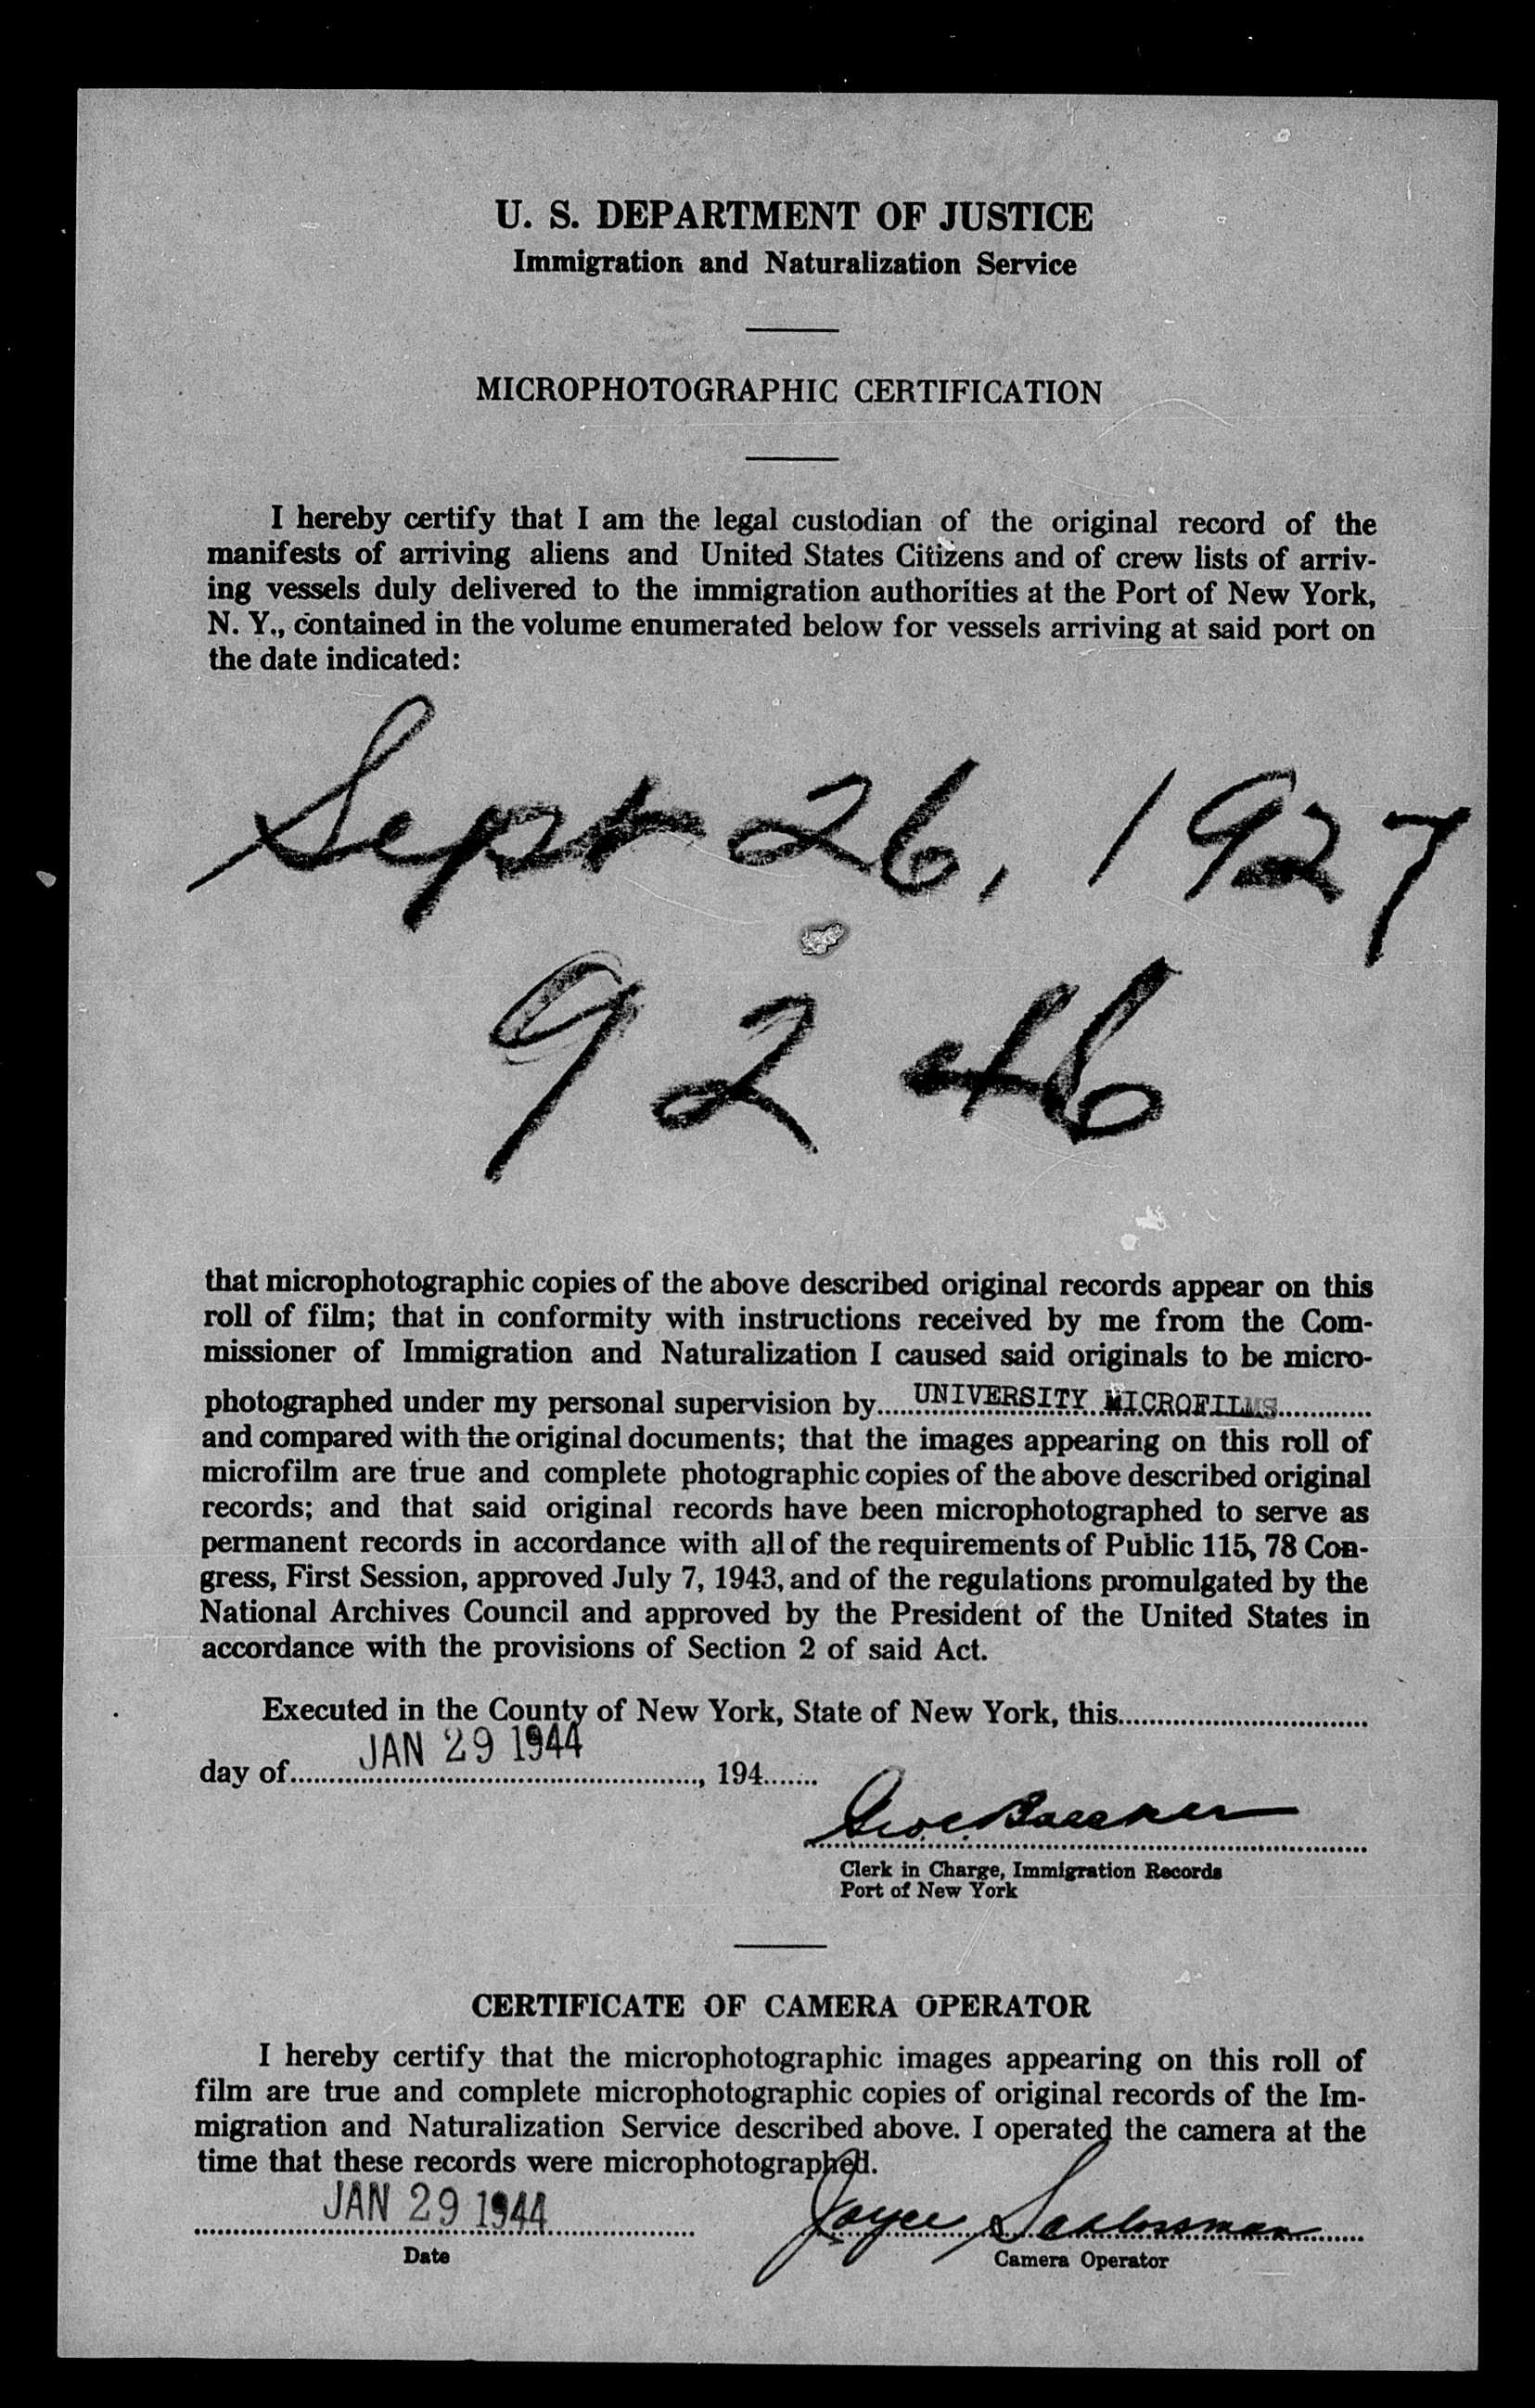 U. S. DEPARTMENT OF JUSTICE
Immigration and Naturalization Service
MICROPHOTOGRAPHIC CERTIFICATION
I hereby certify that I am the legal custodian of the original record of the
manifests of arriving aliens and United States Citizens and of crew lists of arriv-
ing vessels duly delivered to the immigration authorities at the Port of New York,
N. Y., contained in the volume enumerated below for vessels arriving at said port on
the date indicated:
Sept 26, 1927
92
that microphotographic copies of the above described original records appear on this
roll of film; that in conformity with instructions received by me from the Com-
missioner of Immigration and Naturalization I caused said originals to be micro-
photographed under my personal supervision by UNIVERSITY MICROFILMS
and compared with the original documents; that the images appearing on this roll of
microfilm are true and complete photographic copies of the above described original
records; and that said original records have been microphotographed to serve as
permanent records in accordance with all of the requirements of Public 115, 78 Con-
gress, First Session, approved July 7, 1943, and of the regulations promulgated by the
National Archives Council and approved by the President of the United States in
accordance with the provisions of Section 2 of said Act.
Executed in the County of New York, State of New York, this
day of JAN 29 1944, 194
Clerk in Charge, Immigration Records
Port of New York
CERTIFICATE OF CAMERA OPERATOR
I hereby certify that the microphotographic images appearing on this roll of
film are true and complete microphotographic copies of original records of the Im-
migration and Naturalization Service described above. I operated the camera at the
time that these records were microphotographed.
JAN 29 1944 Joyce Schlossman
Date Camera Operator